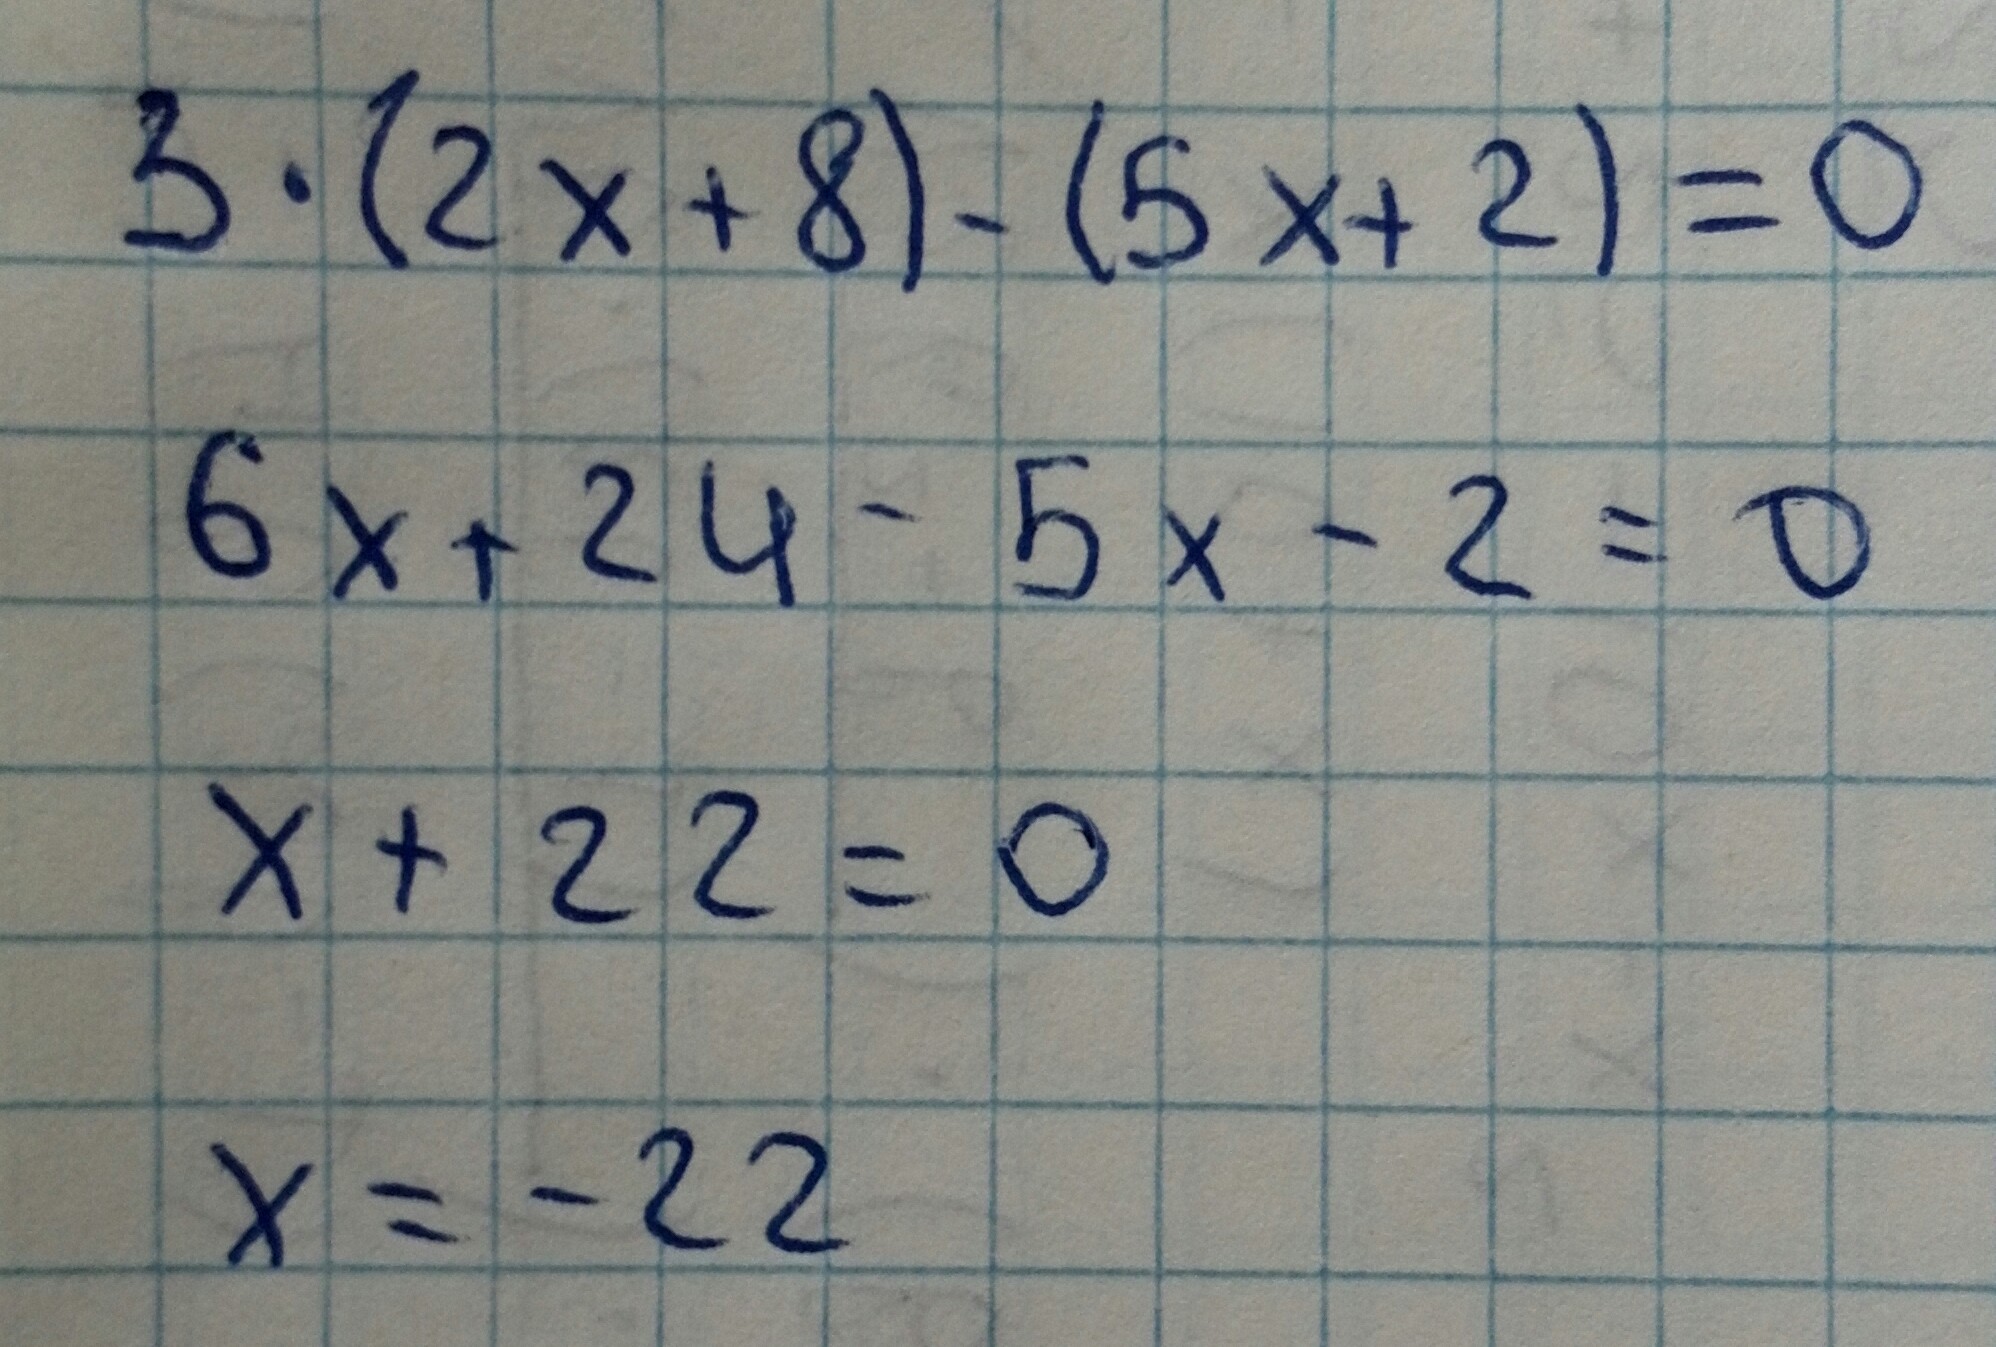 3·(2x+8)-(5x+2)=0
6x+24-5x-2=0
x+22=0
x=-22